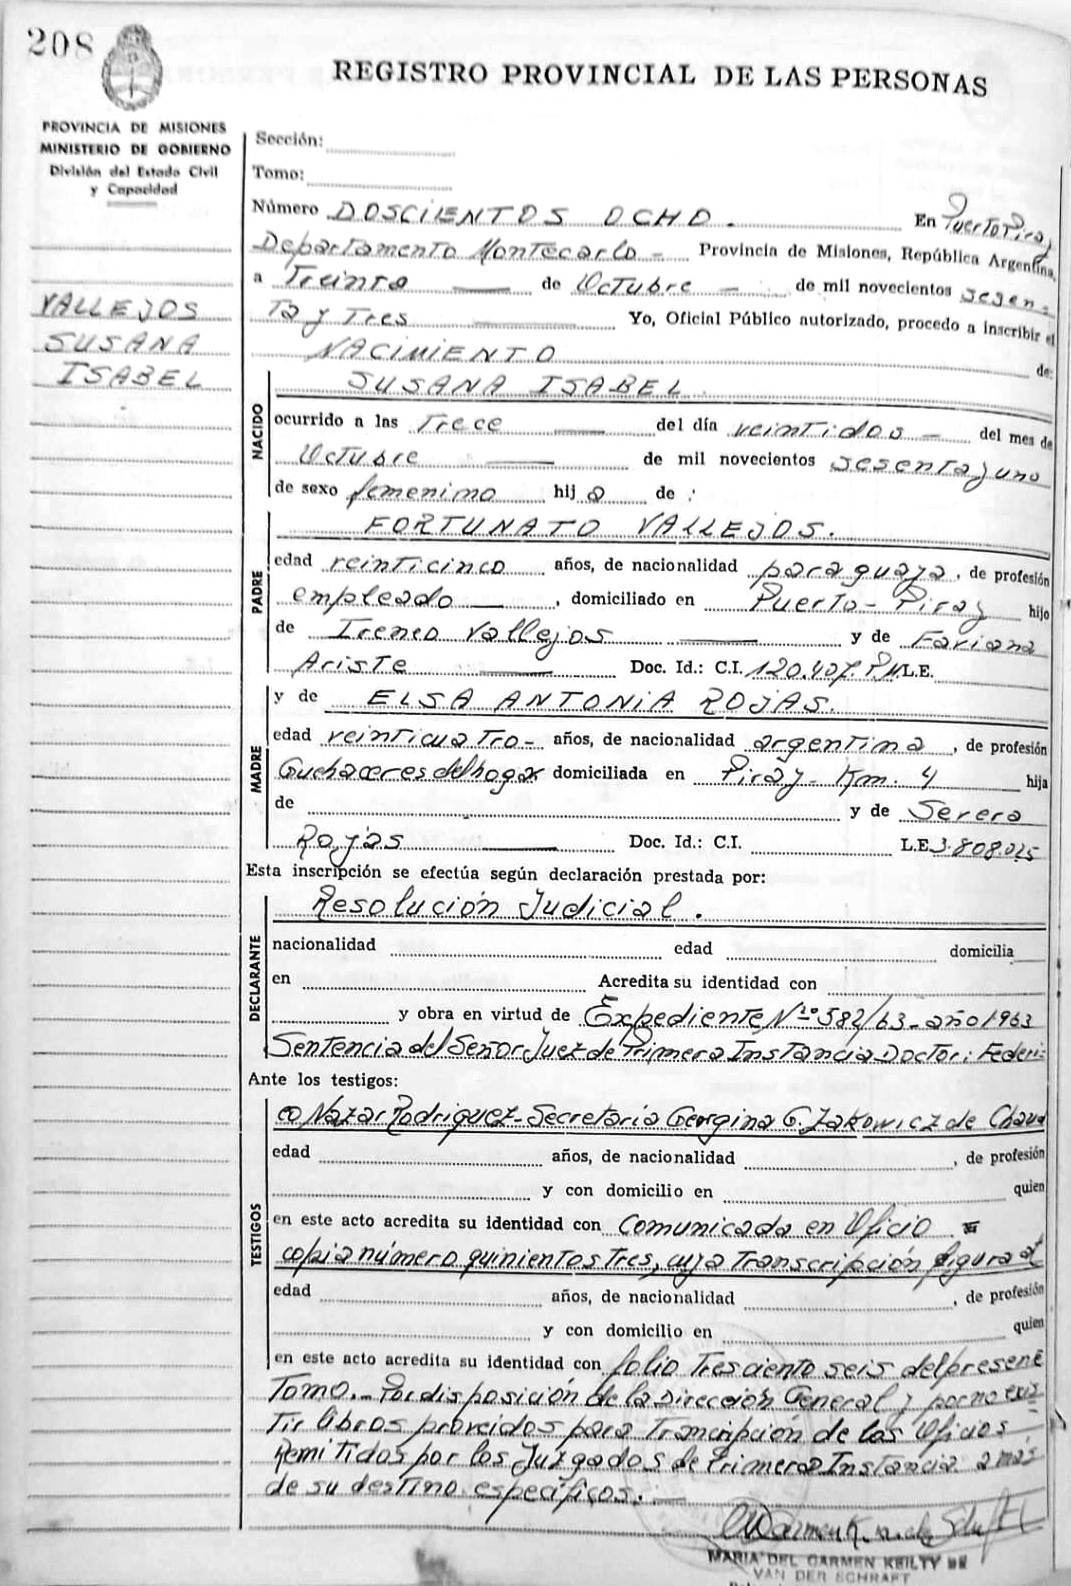 208
REGISTRO PROVINCIAL DE LAS PERSONAS
PROVINCIA DE MISIONES
MINISTERIO DE GOBIERNO
División del Estado Civil
y Capacidad
VALLEJOS
SUSANA
ISABEL
Sección:
Tomo:
Número DOSCIENTOS OCHO. En Puerto Piray
Departamento Montecarlo - Provincia de Misiones, República Argentina,
a Treinta de Octubre - de mil novecientos sesen-
Ta y Tres Yo, Oficial Público autorizado, procedo a inscribir el
NACIMIENTO de:
NACIDO
SUSANA ISABEL.
ocurrido a las Trece del día veintidos - del mes de
Octubre de mil novecientos sesenta y uno
de sexo femenino hij a de :
PADRE
FORTUNATO VALLEJOS.
edad veinticinco años, de nacionalidad paraguaya, de profesión
empleado, domiciliado en Puerto-Piray hijo
de Ireneo Vallejos y de Fariana
Ariste Doc. Id.: C.I. 120.407. P.M. L.E.
MADRE
y de ELSA ANTONIA ROJAS.
edad veinticuatro- años, de nacionalidad argentina, de profesión
Quehaceres del hogar domiciliada en Piray- Km. 4 hija
de y de Severa
Rojas Doc. Id.: C.I. L.E. 3.808.025
Esta inscripción se efectúa según declaración prestada por:
DECLARANTE
Resolución Judicial.
nacionalidad edad domicilia
en Acredita su identidad con
y obra en virtud de Expediente Nº 582/63-año 1963
Sentencia del Señor Juez de Primera Instancia Doctor: Federi-
Ante los testigos:
TESTIGOS
co Nazar Rodriguez-Secretaria Georgina G. Zakowicz de Chau
edad años, de nacionalidad , de profesión
y con domicilio en quien
en este acto acredita su identidad con Comunicada en Oficio
copia número quinientos tres, cuya Transcripción figura al
edad años, de nacionalidad , de profesión
y con domicilio en quien
en este acto acredita su identidad con folio Tresciento seis del present
Tomo.- Por disposición de la Dirección General y por no exis-
Tir libros proveidos para Transcripción de los Oficios
Remitidos por los Juzgados de Primera Instancia a mas
de su destino especificos.-
MARIA DEL CARMEN KEILTY DE
VAN DER SCHRAFT